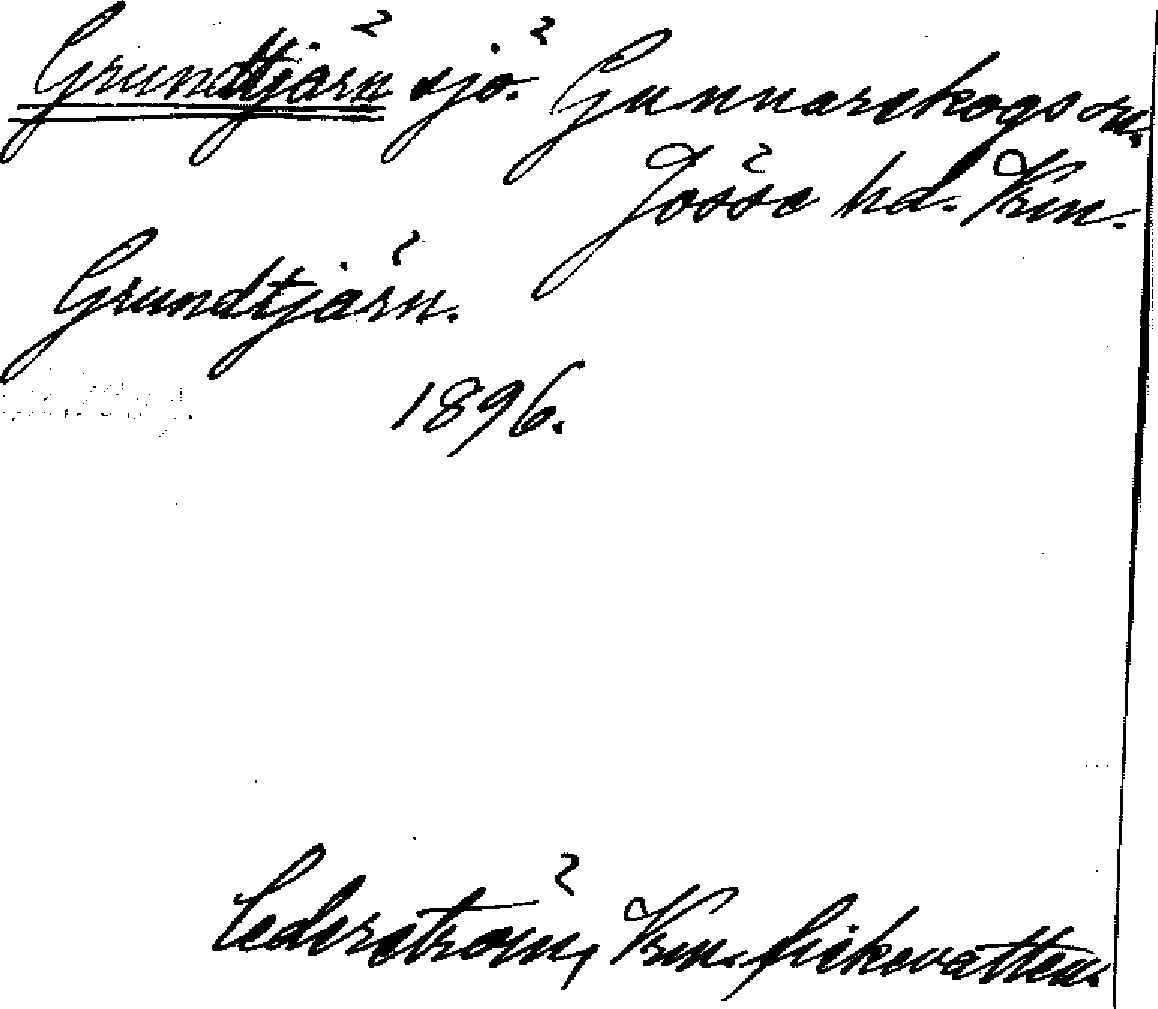 Grundtjärn sjö. Gunnarskogs sn.
Jösse hd. Vrm.
Grundtjärn.
1896.
Cederström, Vrm. fiskevatten.